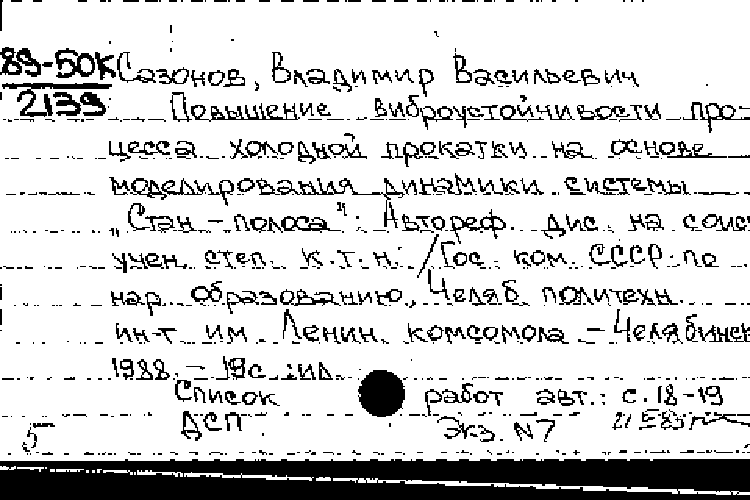 89-БОК Сазонов, Владимир Васильевич
2139 Повышение виброустойчивости про-
цесса холодной прокатки на основе
моделирования динамики системы
„Стан – полоса": Автореф. дис. на соиск
учен. степ. к.т.н. / Гос. ком. СССР по
нар. образованию, Челяб. политехн.
ин-т им. Ленин. комсомола. – Челябинск
1988. – 19с.:ил.
Список работ авт.: с. 18-19
ДСП Экз. N7
5